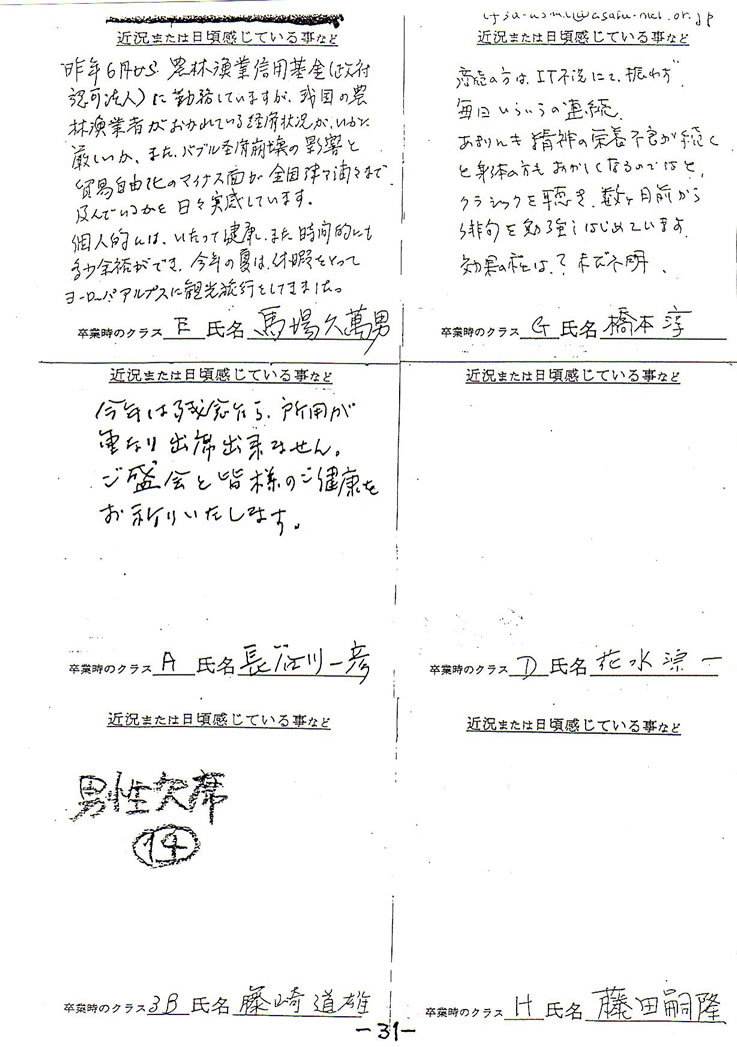 近況または日頃感じている事など
昨年6月から 農林漁業信用基金(政府
認可法人)に勤務していますが、我国の農
林漁業者がおかれている経済状況が、いかに
厳しいか、また、バブル経済崩壊の影響と
貿易自由化のマイナス面が全国津々浦々まで
及んでいるかを日々実感しています。
個人的には、いたって健康、また時間的にも
多少余裕ができ、今年の夏は、休暇をとって
ヨーロッパアルプスに観光旅行をしてきました。
卒業時のクラス E 氏名 馬場久萬男
近況または日頃感じている事など
商売の方は、IT不況にて、振わず、
毎日いらいらの連続。
あまりんき 精神の栄養不良が続く
と身体の方もおかしくなるのではと、
クラシックを聴き、数ヶ月前から
俳句を勉強しはじめています。
効果の程は、? まだ不明、
卒業時のクラス G 氏名 橋本 淳
近況または日頃感じている事など
今年は残念乍ら、所用が
重なり出席出来ません。
ご盛会と皆様のご健康を
お祈りいたします。
卒業時のクラス A 氏名 長谷川一彦
近況または日頃感じている事など
卒業時のクラス D 氏名 花水 一
近況または日頃感じている事など
男性欠席
14
卒業時のクラス 3B 氏名 藤崎道雄
近況または日頃感じている事など
卒業時のクラス H 氏名 藤田嗣隆
-31-